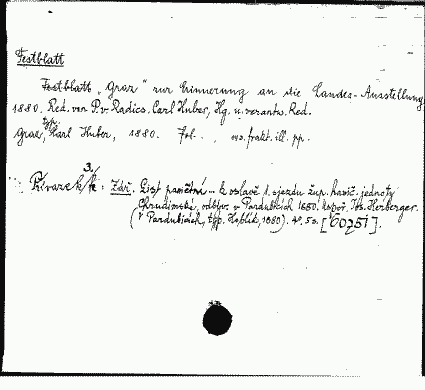 Festblatt
Festblatt „Graz“ zur Erinnerung an die Landes-Ausstellung
1880. Red. von P. v. Radics. Carl Huber, Hg. u. verantw. Red.
typ.
Graz, Karl Huber, 1880. Fol. ill. pp.
3.
Přívazek k: Zář. List památní k oslavě 1. sjezdu žup. hasič. jednoty
Chrudimské, odbýv. v Pardubicích 1880. Uspoř. Jos. Herberger.
(V Pardubicích, typ. Hoblík, 1880). 4°. 5 s. [60751].